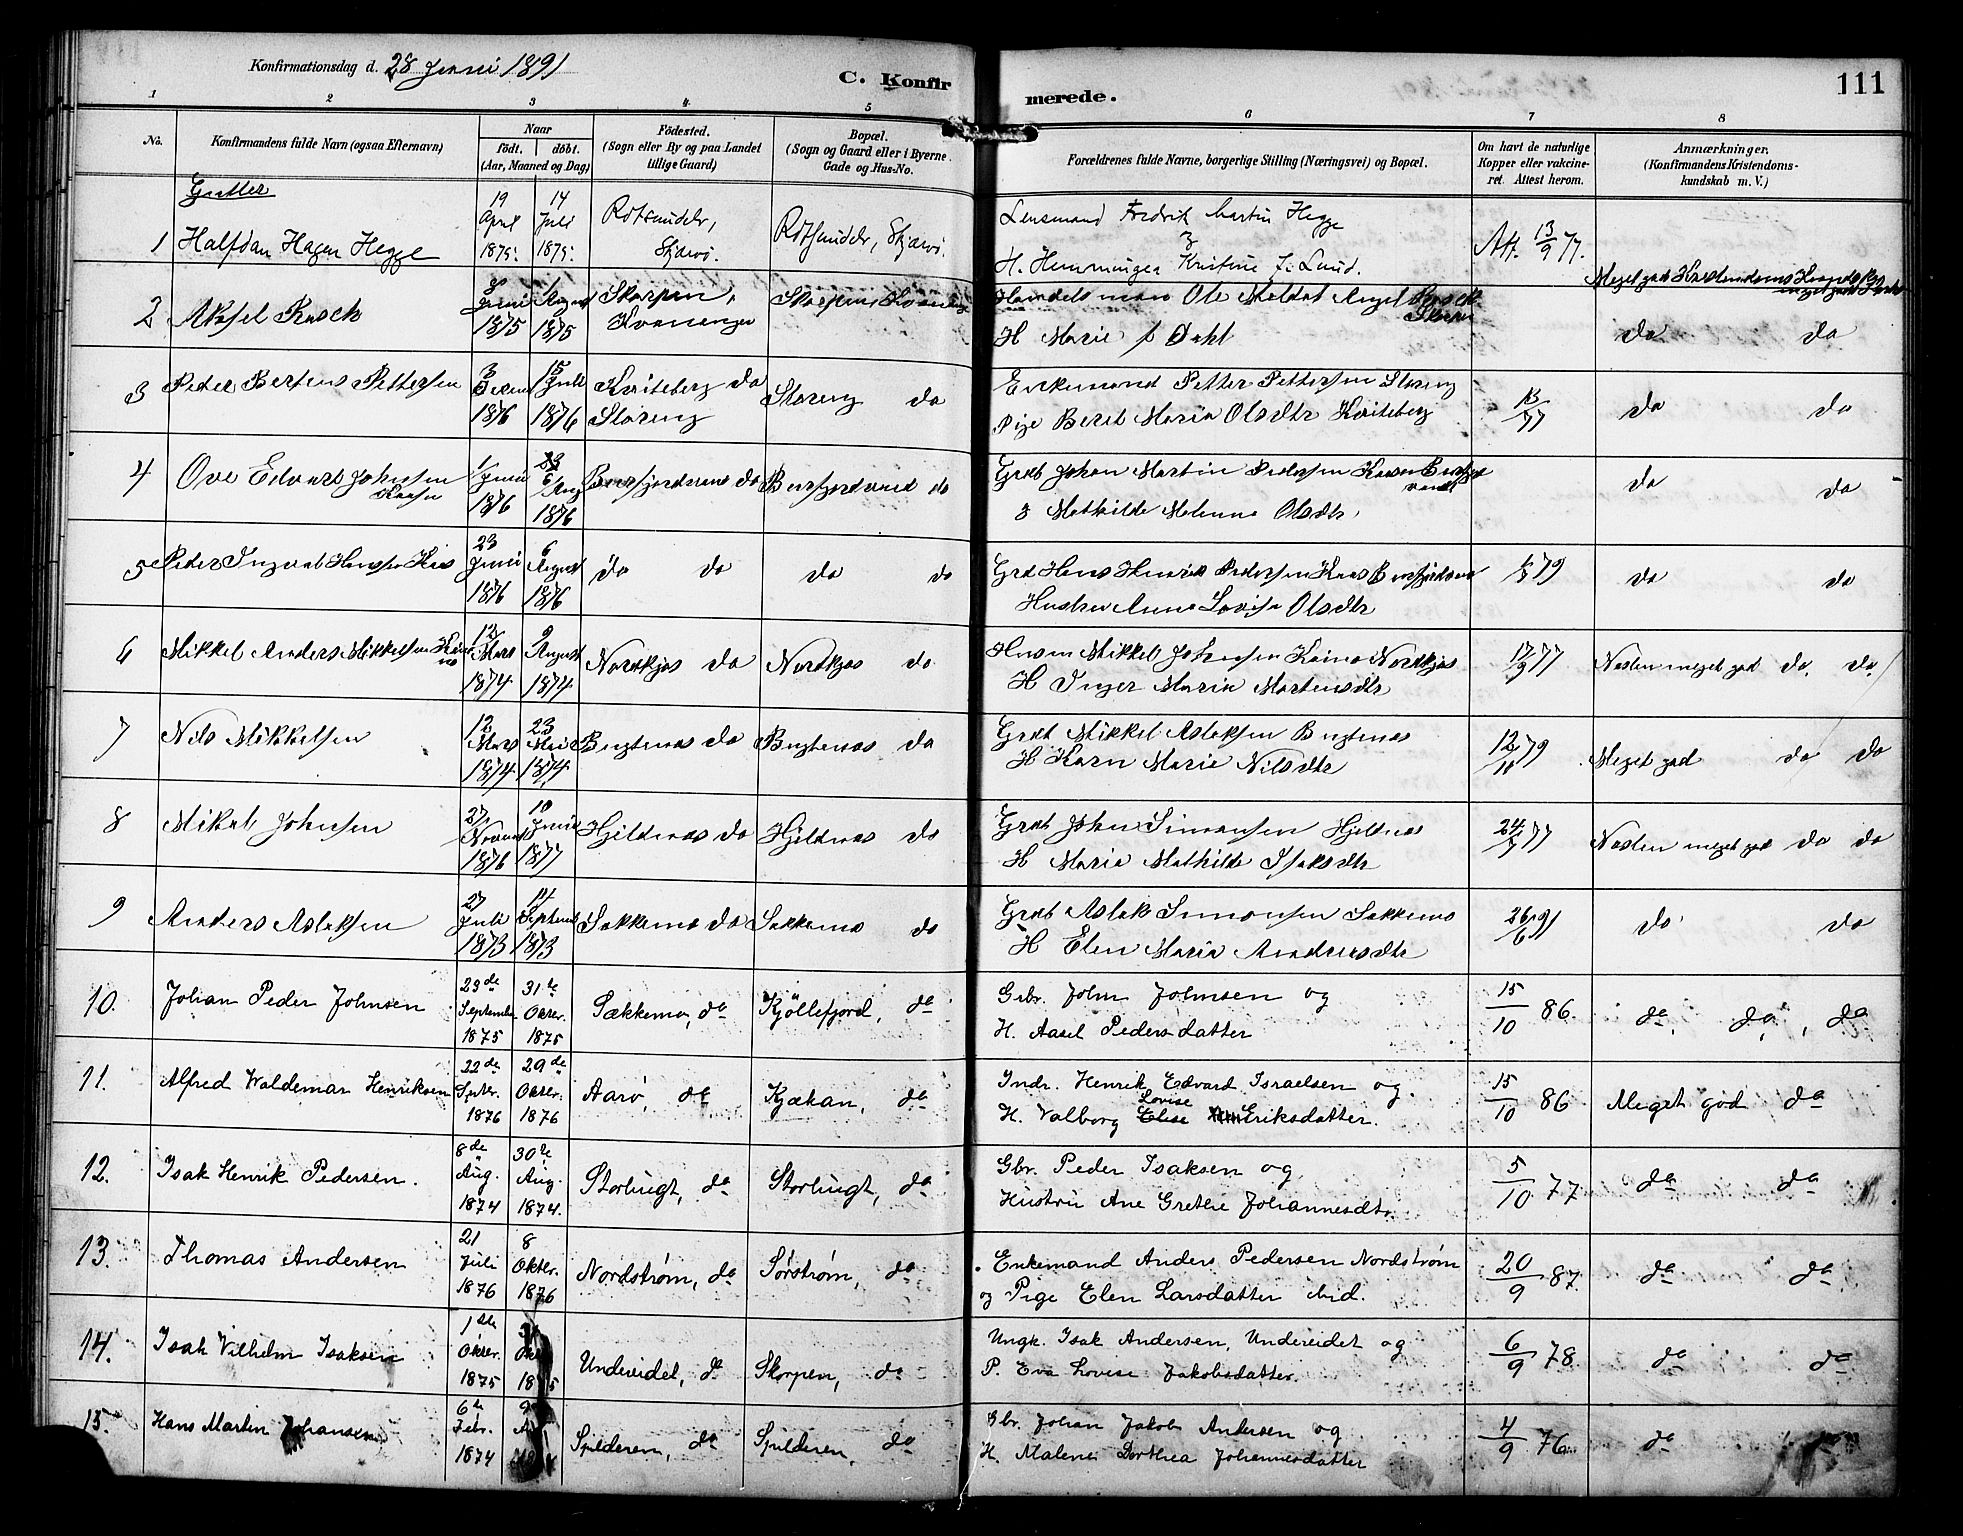 Konfirmationsdag d. 28 Juni 1891
C. Konfirmerede.
111
1 2 3 4 5 6 7 8
No.
Konfirmandens fulde Navn (ogsaa Efternavn)
Naar
født. døbt.
(Aar, Maaned og Dag)
Fødested.
(Sogn eller By og paa Landet
tillige Gaard)
Bopæl.
(Sogn og Gaard eller i Byerne
Gade og Hus-No.
Forældrenes fulde Navne, borgerlige Stilling (Næringsvei) og Bopæl.
Om havt de naturlige
Kopper eller vakcine-
ret. Attest herom.
Anmærkninger.
(Konfirmandens Kristendoms-
kundskab m. V.)
Gutter
1 Halfdan Hagen Hegge
19 April 1875.
14 Juli 1875.
Rotsundelv, Skjærvø.
Rotsundelv, Skjærvø.
Lensmand Fredrik Martin Hegge
H. Henninger Kristine f. Lund.
Att. 13/9 77.
Meget god Kristendoms Kundskab
2 Aksel Rasch
Juni 1875
August 1875
Skorpen, Kvænangen
Skorpen Kvænang
Handelsmand Ole Meldal Angel Rasch Skorpen
H Marie f Dahl
do do
3 Peder Bertens Pettersen
3 1876
15 Juli 1876
Kviteberg do
Storeng
Storeng do
Enkemand Petter Pettersen Storeng
Pige Berit Maria Olsdtr Kviteberg
do do
4 Ove Edvart Johnsen
1 Juni 1876
6 Aug 1876
Burfjordvand do
Burfjordvand do
Grdb Johan Martin Pedersen Burfjordvand
& Mathilde Malenna Olsdtr
do do
5 Peder Ingval Hansen
23 Juni 1876
6 August 1876
do do
do do
Grd Hans Henrik Pedersen
Hustru Anne Lovisa Olsdtr
79
do do
6 Mikkel Anders Mikkelsen Kaino
12 Mars 1874
9 August 1874
Nordkjos do
Nordkjos do
Husm Mikkel Johansen Kaino Nordkjos
H Inger Maria Martensdtr
17/9 77
Næsten meget god do. do.
7 Nils Mikkelsen
12 Mars 1874
23 1874
Bugtenæs do
Bugtenæs do
Grdb Mikkel Aslaksen Bugtenæs
H Karn Maria Nilsdtr
12/11 79
Meget god do do
8 Mikal Johnsen
27 Novemb 1876
10 Juni 1877
Hjeldnæs do
Hjeldnæs do
Grdb John Simonsen Hjeldnæs
H Maria Mathilde Isaksdtr
24/7 77
Næsten meget god do do
9 Anders Aslaksen
27 Juli 1873
14 Septemb 1873
Sækkemo do
Sækkemo do
Grdb Aslak Simonsen Sækkemo
H Elen Maria Andersdtr
26/6 91
do do
10. Johan Peder Johnsen
23de September 1875
31te Oktbr. 1875
Sækkemo, do
Kjöllefjord, do
Grbr. John Johnsen og
H. Aasel Pedersdatter
15/10 86.
do, do, do
11. Alfred Waldemar Henriksen
22de Sptbr. 1876
29de Oktbr. 1876
Aarø, do
Kjækan, do
Indr. Henrik Edvard Israelsen og
H. Valborg Lovise Eriksdatter.
15/10 86
Meget god do
12. Isak Henrik Pedersen.
8de Aug. 1874
30te Aug. 1874.
Storbugt, do
Storbugt, do
Gbr. Peder Isaksen og
Hustru Ane Grethe Johannesdt.
5/10 77
do do
13. Thomas Andersen
21 Juli 1876
8 Oktbr. 1876
Nordstrøm, do
Sørstrøm, do
Enkemand Anders Pedersen Nordstrøm
og Pige Elen Larsdatter ibid.
20/9 87.
do do
14. Isak Vilhelm Isaksen
1ste Oktbr. 1875
1875
Undereidet, do
Skorpen, do
Ungk. Isak Andersen, Undereidet og
P. Eva Lovise Jakobsdatter.
6/9 78
do do
15. Hans Martin Johansen
6te Febr. 1874
Spilderen, do
Spilderen, do
Gbr. Johan Jakob Andersen og
H. Malene Dorthea Johannesdatter
4/9 76
do do